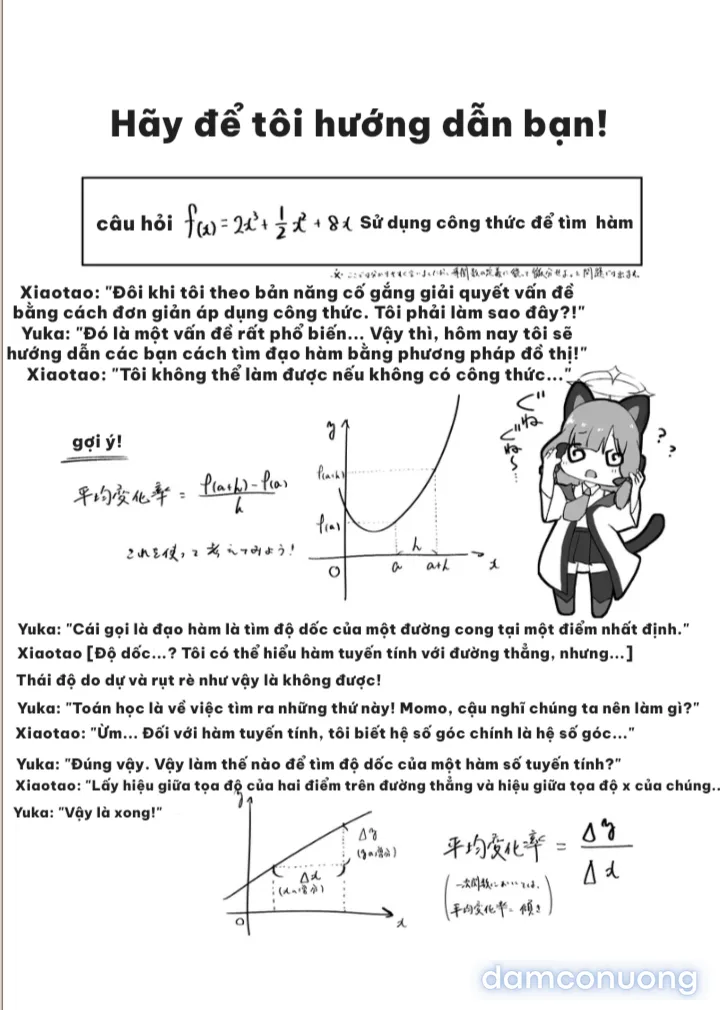 Hãy để tôi hướng dẫn bạn!
câu hỏi f(x) = 2x³ + 1/2 x² + 8x Sử dụng công thức để tìm hàm
Xiaotao: "Đôi khi tôi theo bản năng cố gắng giải quyết vấn đề
bằng cách đơn giản áp dụng công thức. Tôi phải làm sao đây?!"
Yuka: "Đó là một vấn đề rất phổ biến... Vậy thì, hôm nay tôi sẽ
hướng dẫn các bạn cách tìm đạo hàm bằng phương pháp đồ thị!"
Xiaotao: "Tôi không thể làm được nếu không có công thức..."
gợi ý!
平均変化率 = f(a+h)-f(a)/h
これを使って考えてみよう!
y
f(a+h)
f(a)
h
O a a+h x
ぐぬ
ぐぬね〜
? ?
Yuka: "Cái gọi là đạo hàm là tìm độ dốc của một đường cong tại một điểm nhất định."
Xiaotao [Độ dốc...? Tôi có thể hiểu hàm tuyến tính với đường thẳng, nhưng...]
Thái độ do dự và rụt rè như vậy là không được!
Yuka: "Toán học là về việc tìm ra những thứ này! Momo, cậu nghĩ chúng ta nên làm gì?"
Xiaotao: "Ừm... Đối với hàm tuyến tính, tôi biết hệ số góc chính là hệ số góc..."
Yuka: "Đúng vậy. Vậy làm thế nào để tìm độ dốc của một hàm số tuyến tính?"
Xiaotao: "Lấy hiệu giữa tọa độ của hai điểm trên đường thẳng và hiệu giữa tọa độ x của chúng..
Yuka: "Vậy là xong!"
y
Δy
(yの増分)
Δx
(xの増分)
O x
平均変化率 = Δy/Δx
(一次関数においては、
平均変化率 = 傾き)
damconuong